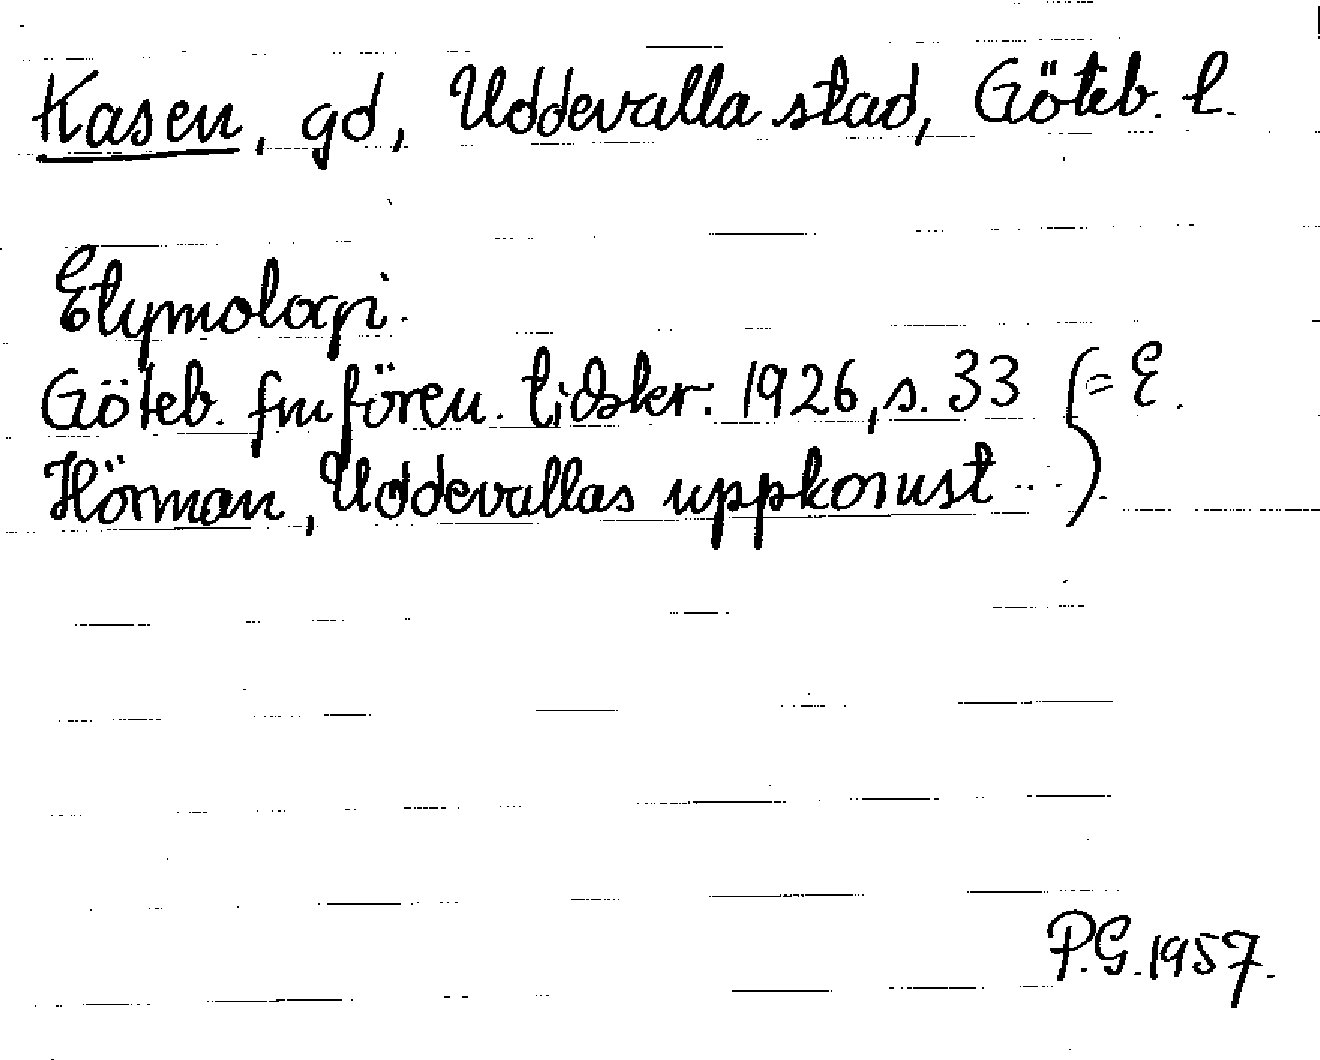 Kasen, gd, Uddevalla stad, Göteb. l.
Etymologi.
Göteb. fmfören. tidskr. 1926, s. 33 (= E.
Hörman, Uddevallas uppkomst ... ).
P.G. 1957.